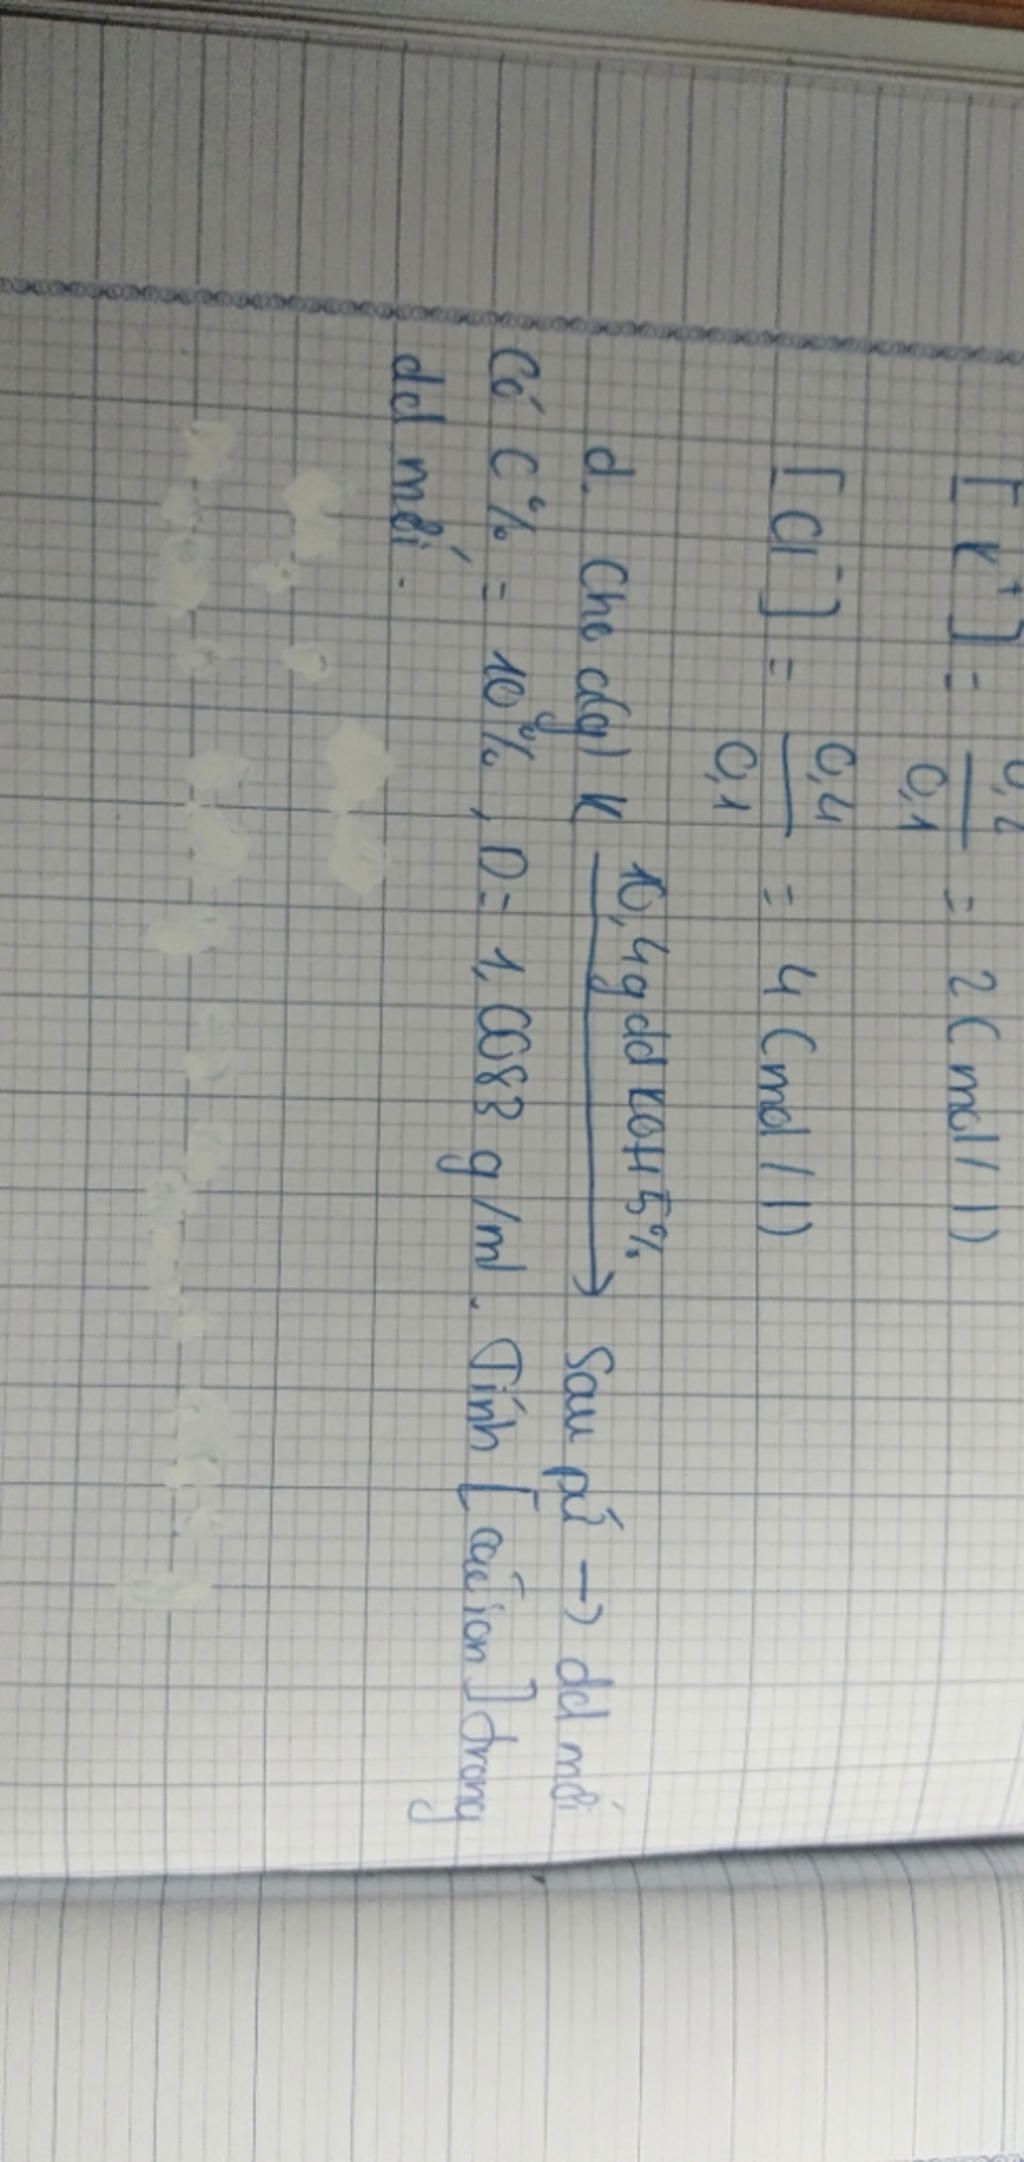 [K⁺] = 0,2 / 0,1 = 2 (mol/l)
[Cl⁻] = 0,4 / 0,1 = 4 (mol/l)
d. Cho a(g) K 10,4g dd KOH 5% → Sau pứ → dd mới
Có C% = 10%, D = 1,0083 g/ml. Tính [các ion] trong
dd mới.